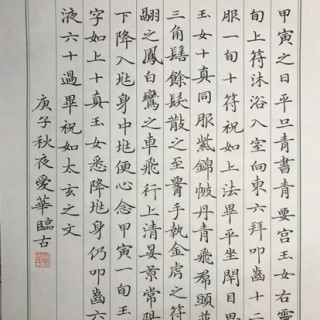 甲寅之日平旦青書青要宮玉女右靈
旬上符沐浴入室向東六拜叩齒十二
服一旬十符祝如上法畢平坐閉目思
玉女十真同服紫錦帔丹青飛帬頭並
三角髻餘髮散之至腰手執金虎之符
之鳳白鸞之車飛行上清晏景常陽
下降入兆身中兆便心念甲寅一旬玉
字如上十真玉女悉降兆身仍叩齒六
液六十過畢祝如太玄之文
庚子秋夜愛華臨古